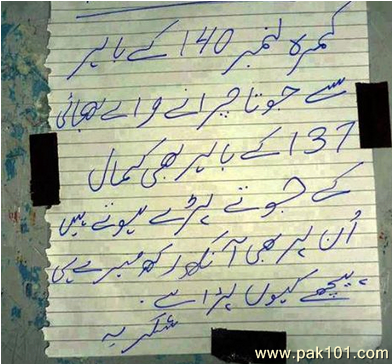 کمرہ نمبر 140 کے باہر
سے جوتا چرانے والے بھائی
137 کے باہر بھی کمال
کے جوتے پڑے ہوتے ہیں
اُن پر بھی آنکھ رکھ میرے ہی
پیچھے کیوں پڑا ہے۔
شکریہ
www.pak101.com